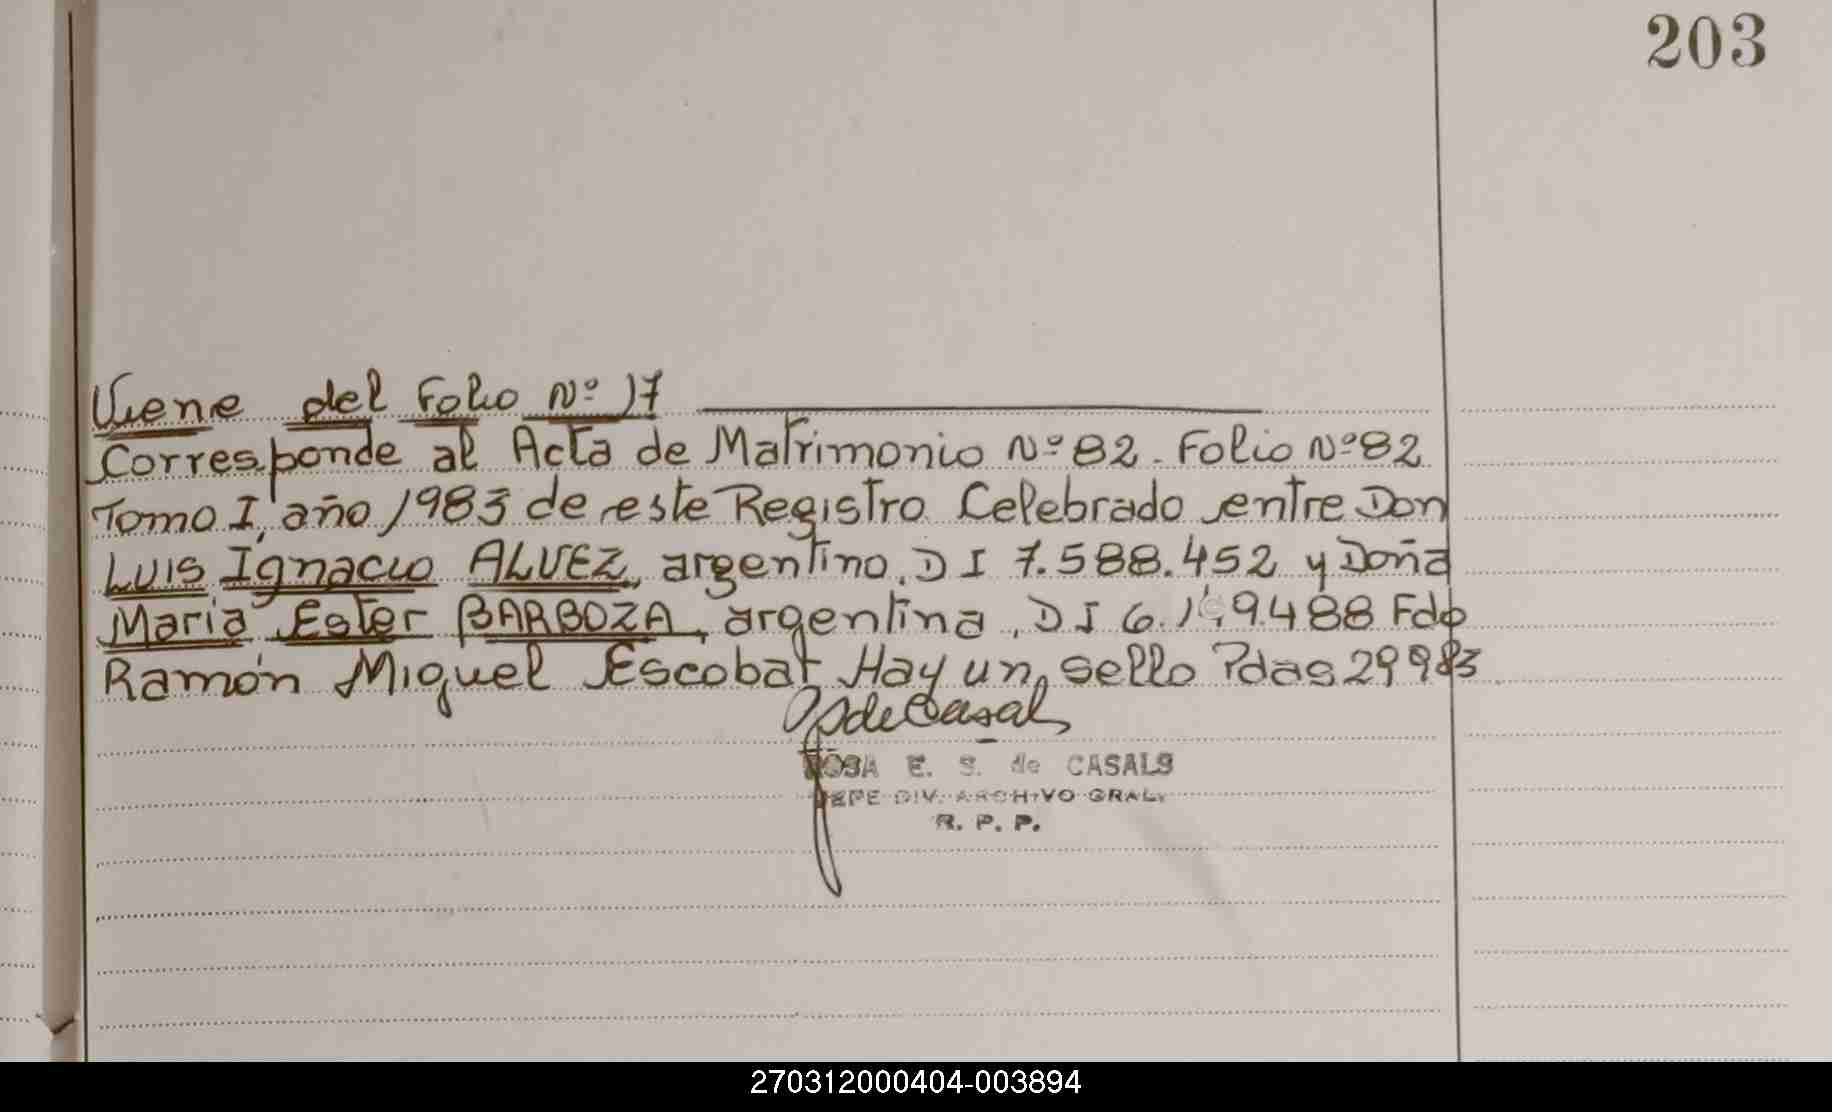 203
Viene del Folio Nº 17
Corresponde al Acta de Matrimonio Nº 82. Folio Nº 82
Tomo I, año 1983 de este Registro Celebrado entre Don
Luis Ignacio ALVEZ, argentino, D I 7.588.452 y Doña
Maria Ester BARBOZA, argentina, D I 6. 9.488 Fdo
Ramón Miguel Escobar Hay un sello Pdas 29983
de Casals
ROSA E. S. de CASALS
JEFE DIV. ARCHIVO GRAL.
R. P. P.
270312000404-003894